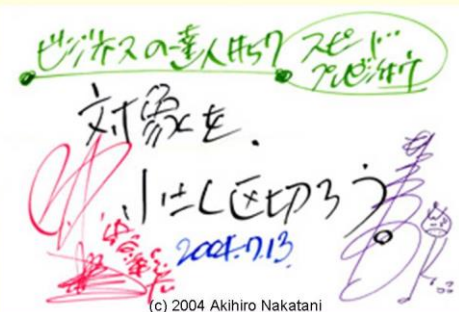 ビジネスの達人塾57 スピード・
プレゼン術
対象を、
小さく区切ろう。
2004.7.13.
(c) 2004 Akihiro Nakatani